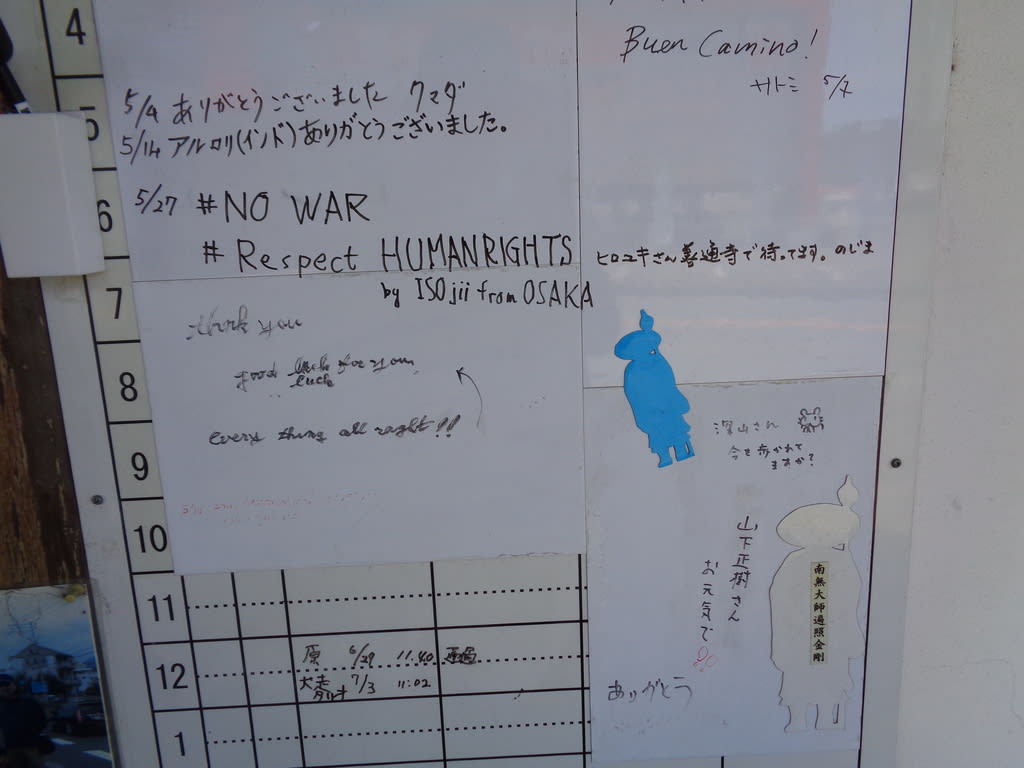 4
5
6
7
8
9
10
11
12
1
5/9 ありがとうございました クマダ
5/14 アルロリ(インド)ありがとうございました。
5/27 #NO WAR
# Respect HUMAN RIGHTS
by ISOjii from OSAKA
thank you
good luck for you
luck
every thing all raght!!
原 6/29 11:40 通過
大走 タルオ 7/3 11:02
Buen Camino!
サトミ 5/7
ヒロユキさん善通寺で待ってます。のじま
深山さん
今も歩かれて
ますか?
山下正樹さん
お元気で
ありがとう
南無大師遍照金剛